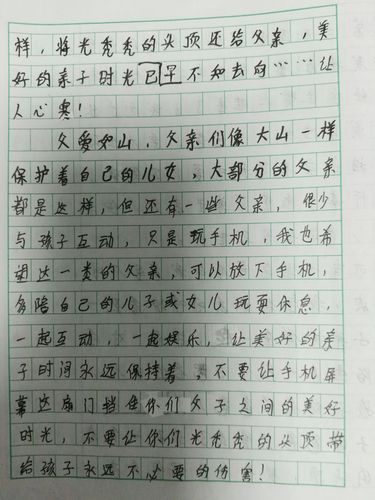 样，将光秃秃的头顶还给父亲，美
好的亲子时光已早不知去向……让
人心寒！
父爱如山，父亲们像大山一样
保护着自己的儿女，大部分的父亲
都是这样，但还有一些父亲，很少
与孩子互动，只是玩手机，我也希
望这一类的父亲，可以放下手机，
多陪自己的儿子或女儿玩耍休息，
一起互动，一起娱乐，让美好的亲
子时间永远保持着，不要让手机屏
幕这扇门挡住你们父子之间的美好
时光，不要让你们光秃秃的头顶带
给孩子永远不必要的伤害！